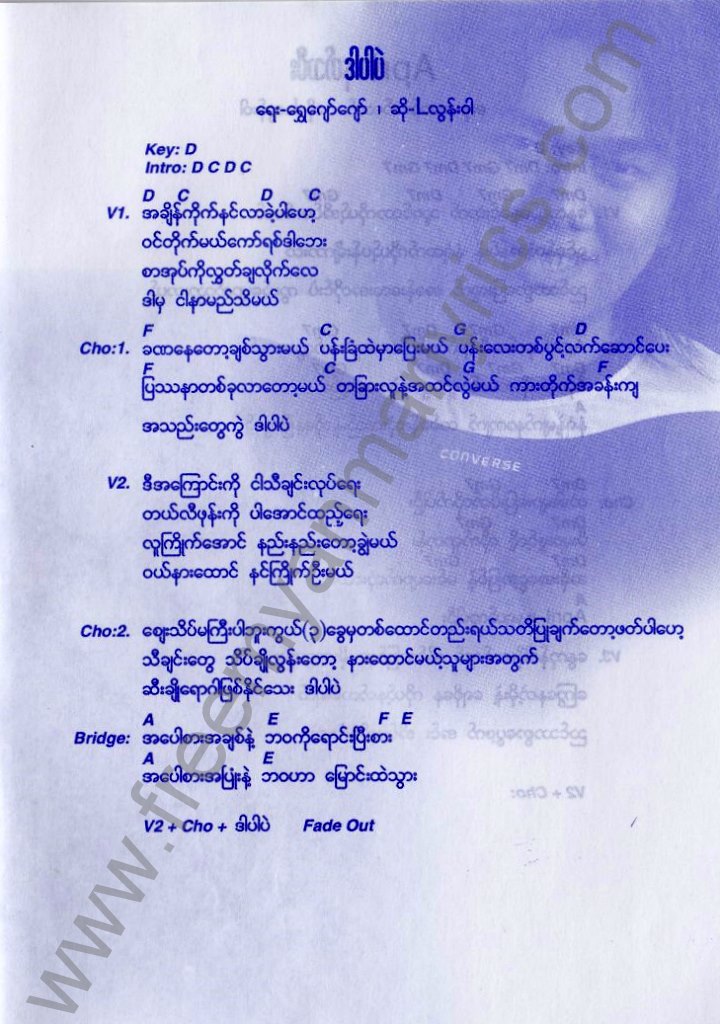 ဒါပါပဲ
ရေး-ရွှေဂျော်ဂျော် ၊ ဆို-Lလွန်းဝါ
Key: D
Intro: D C D C
D C D C
V1. အချိန်ကိုက်နင်လာခဲ့ပါဟေ့
ဝင်တိုက်မယ်ကော်ရစ်ဒါဘေး
စာအုပ်ကိုလွှတ်ချလိုက်လေ
ဒါမှ ငါနာမည်သိမယ်
F C G D
Cho:1. ခဏနေတော့ချစ်သွားမယ် ပန်းခြံထဲမှာပြေးမယ် ပန်းလေးတစ်ပွင့်လက်ဆောင်ပေး
F C G F
ပြဿနာတစ်ခုလာတော့မယ် တခြားလူနဲ့အထင်လွဲမယ် ကားတိုက်အခန်းကျ
အသည်းတွေကွဲ ဒါပါပဲ
CONVERSE
V2. ဒီအကြောင်းကို ငါသီချင်းလုပ်ရေး
တယ်လီဖုန်းကို ပါအောင်ထည့်ရေး
လူကြိုက်အောင် နည်းနည်းတော့ချွဲမယ်
ဝယ်နားထောင် နင်ကြိုက်ဦးမယ်
Cho:2. ဈေးသိပ်မကြီးပါဘူးကွယ်(၃)ခွေမှတစ်ထောင်တည်းရယ်သတိပြုချက်တော့ဖတ်ပါဟေ့
သီချင်းတွေ သိပ်ချိုလွန်းတော့ နားထောင်မယ့်သူများအတွက်
ဆီးချိုရောဂါဖြစ်နိုင်သေး ဒါပါပဲ
A E F E
Bridge: အပေါစားအချစ်နဲ့ ဘဝကိုရောင်းပြီးစား
A E
အပေါစားအပြုံးနဲ့ ဘဝဟာ မြောင်းထဲသွား
V2 + Cho + ဒါပါပဲ Fade Out
www.freemyanmarlyrics.com